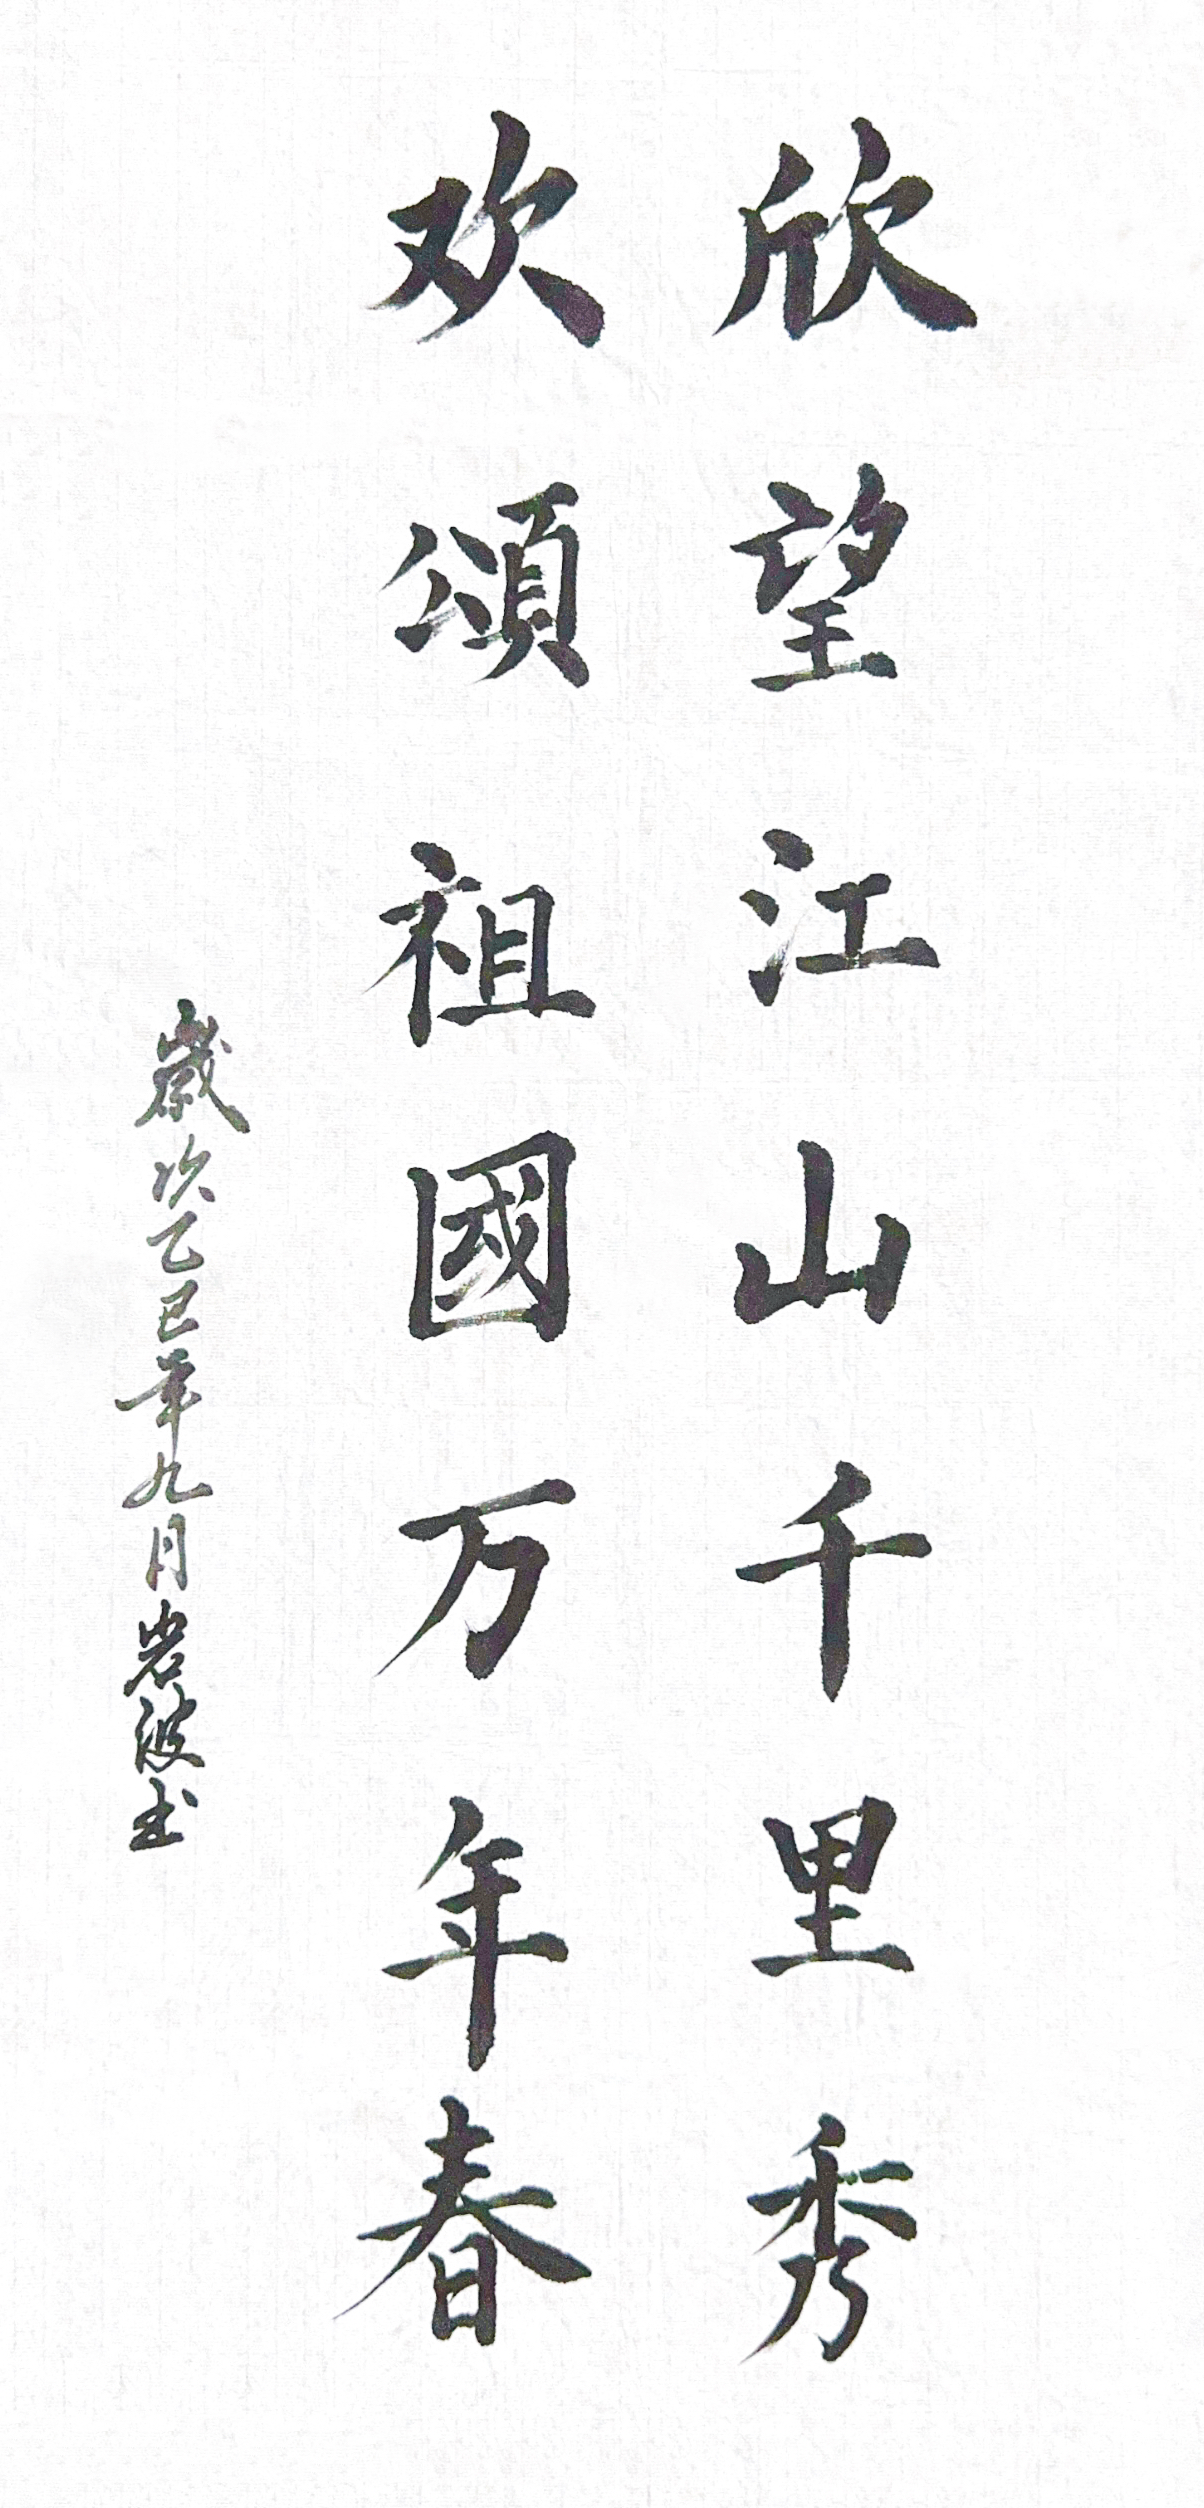 欣望江山千里秀
欢頌祖國万年春
歲次乙巳年九月岩波书